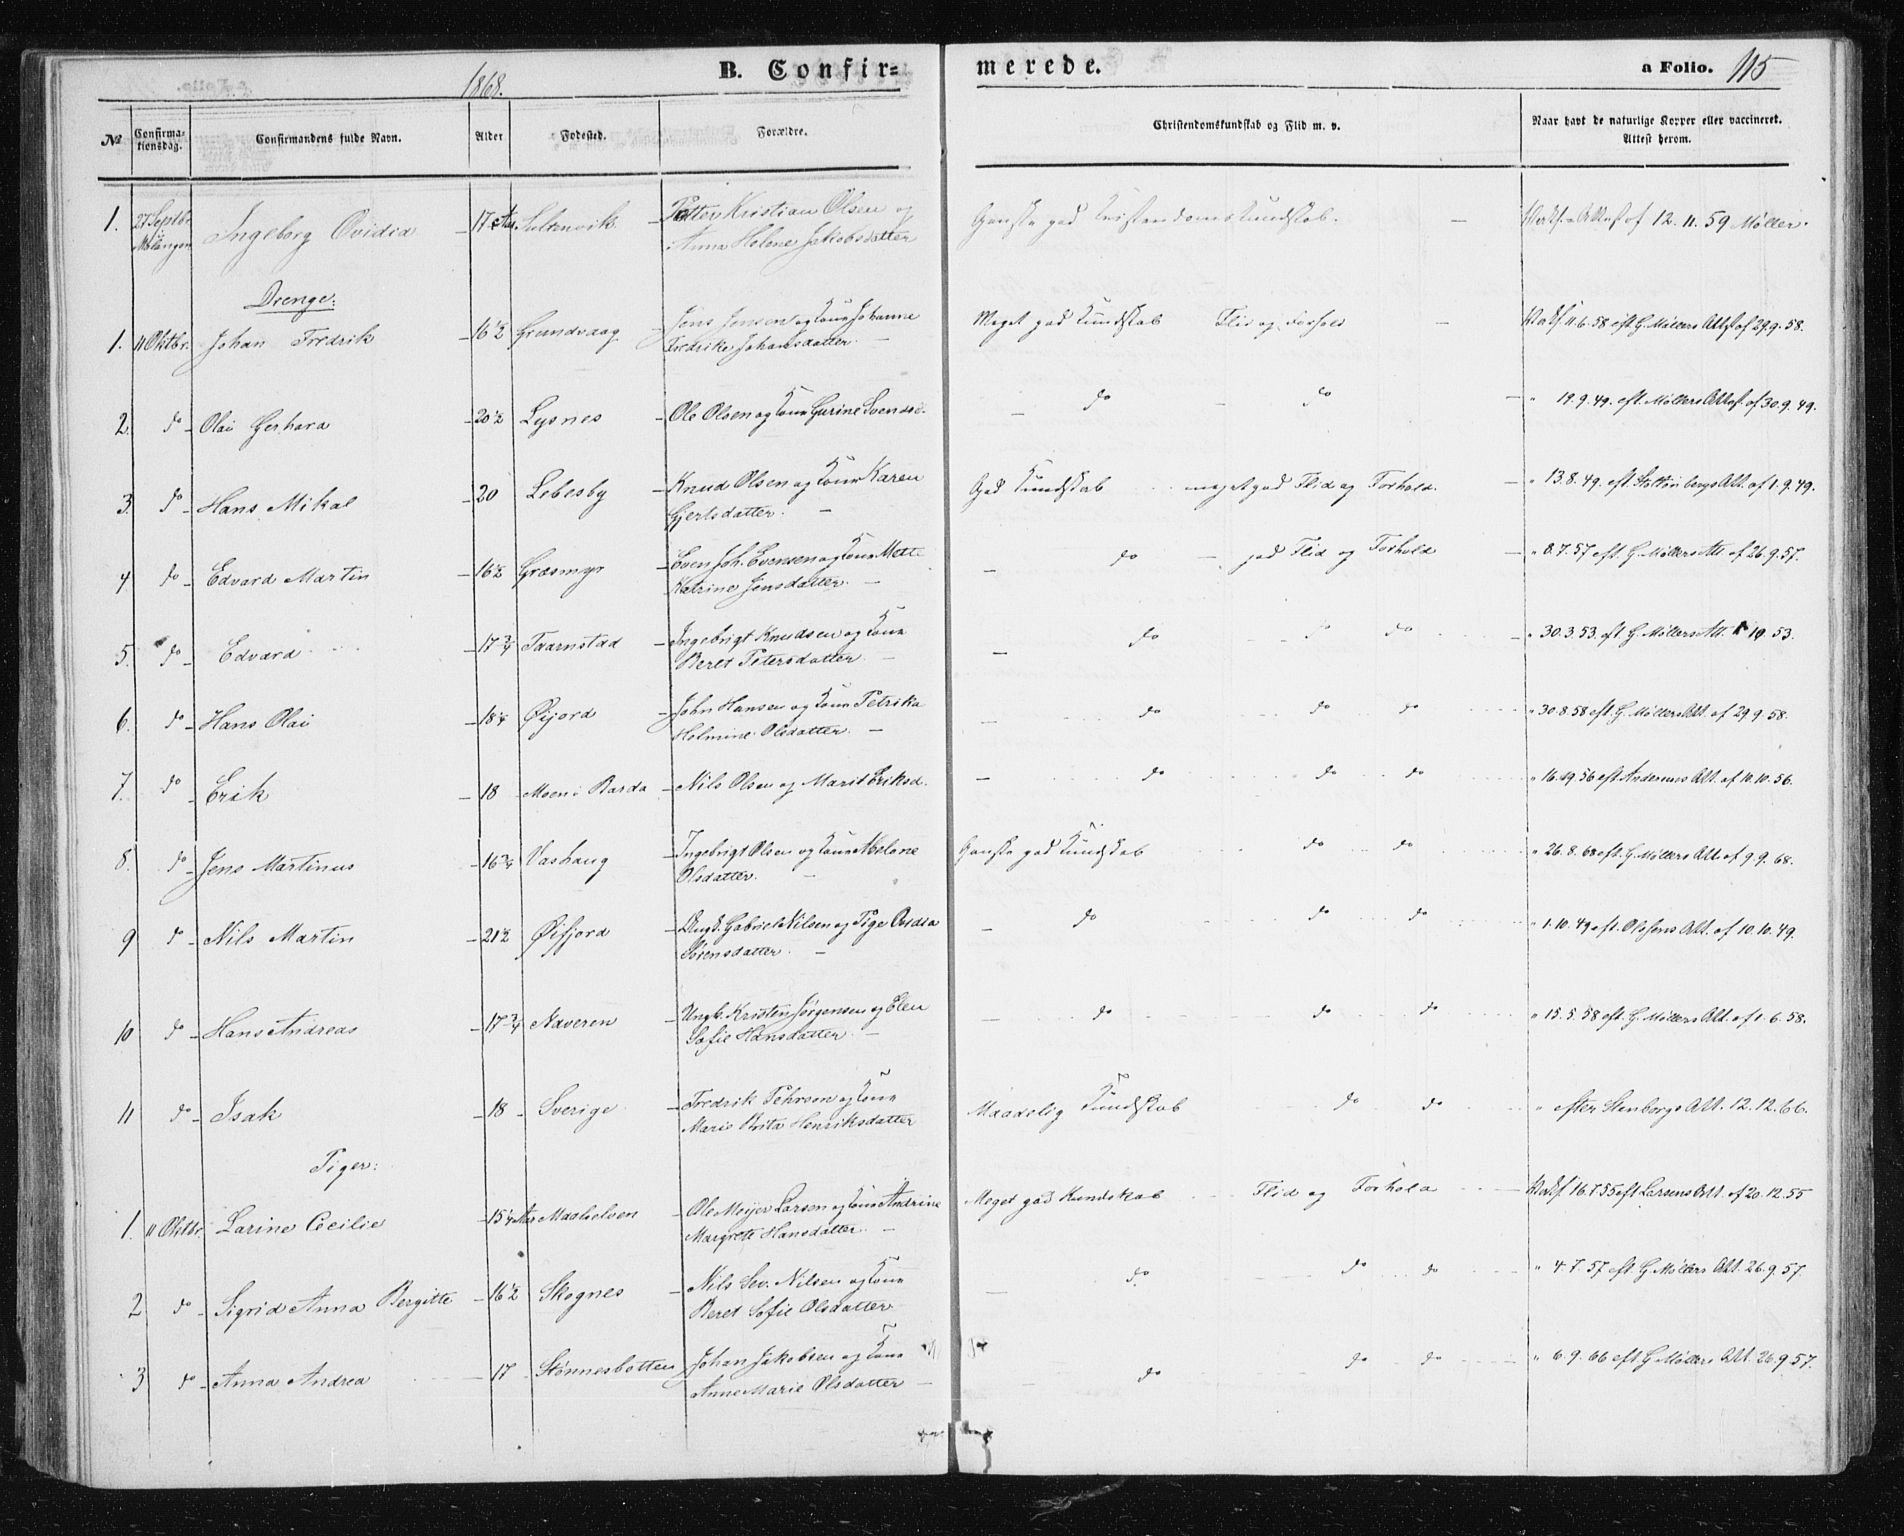 1868.
B. Confir=
merede.
a Folio. 115
№
Confirma-
tionsdag.
Confirmandens fulde Navn.
Alder
Fødested.
Forældre.
Christendomskundskab og Flid m. v.
Naar havt de naturlige Kopper eller vaccineret.
Attest herom.
1. 27 Septbr Ingeborg Ovidia 17 Aar Petter Kristian Olsen og Ganske god Kristendomskundskab. — Vaks. Attest af 12.11.59 Møller.
Malangen Anna Helene Jakobsdatter
Drenge:
1. 11 Oktbr. Johan Fredrik 16½ Grundvaag Jens Jensen og Kone Johanne Meget god Kundskab Flid og Forhold — Vaks. 11.6.58 eft. G. Møllers Attst af 29.9.58.
Fredrike Johansdatter. —
2. do Olai Gerhard 20½ Lysnes Ole Olsen og Kone Gurine Svendsd. — do do — " 19.9.49. eft. Møllers Attest. af 30.9.49.
3. do Hans Mikal 20 Lebesby Knud Olsen og Kone Karen God Kundskab meget god Flid og Forhold. — " 13.8.49. eft. Stoltenbergs Att. af 1.9.49.
Gjertsdatter. —
4. do Edvard Martin 16½ Græsmyr Even Joh. Evensen og Kone Mette — do — god Flid og Forhold — " 8.7.57 eft. G. Møllers Att. af 26.9.57.
Katrine Jensdatter. —
5. do Edvard 17¾ Taarnstad Ingebrigt Knudsen og Kone — do do do — " 30.3.53. eft. G. Møllers Att. 10.53.
Beret Petersdatter. —
6. do Hans Olai 18¼ Øijord John Hansen og Kone Petrika — do do do " 30.8.58 eft. G. Møllers Att. af 29.9.58.
Holmine Olsdatter. —
7. do Erik 18 Moen i Bardo Nils Olsen og Marit Eriksd. — do do do " 56 eft Att. af 10.10.56.
8. do Jens Martinus 16¾ Vashaug Ingebrigt Olsen og Kone Abelone Ganske god Kundskab do do " 26.8.68 eft. G. Møllers Att. af 9.9.68.
Olsdatter. —
9 do Nils Martin 21½ Øifjord Ungk. Gabriel Nilsen og Pige Ovidia — do do do " 1.10.49 eft. Olsens Att. af 10.10.49.
Sørensdatter. —
10 do Hans Andreas 17¾ Naveren Ungk. Kristen Jørgensen og Elen — do do do " 15.5.58 eft. G. Møllers Att. af 1.6.58.
Sofie Hansdatter. —
11 do Isak 18 Sverige Fredrik Pehrson og Kone Maadelig Kundskab do do " efter Stenborgs Att. 12.12.66.
Maria Brita Henriksdatter
Piger:
1. 11 Oktbr. Larine Cecilie 15¼ Aar Maalselven Ole Meyer Larsen og Kone Andrine Meget god Kundskab Flid og Forhold Vaks. 16.7.55 eft Larsens Att. af 20.12.55
Margrete Hansdatter. —
2 do Sigrid Anna Bergitte 16½ Skognes Nils Sev. Nilsen og Kone — do do do " 4.7.57 eft. G. Møllers Att. 26.9.57.
Beret Sofie Olsdatter
3 do Anna Andrea 17 Stønnesbotten Johan Jakobsen og Kone — do do do " 6.9.66 eft G. Møllers Att. 26.9.57.
Anne Marie Olsdatter —